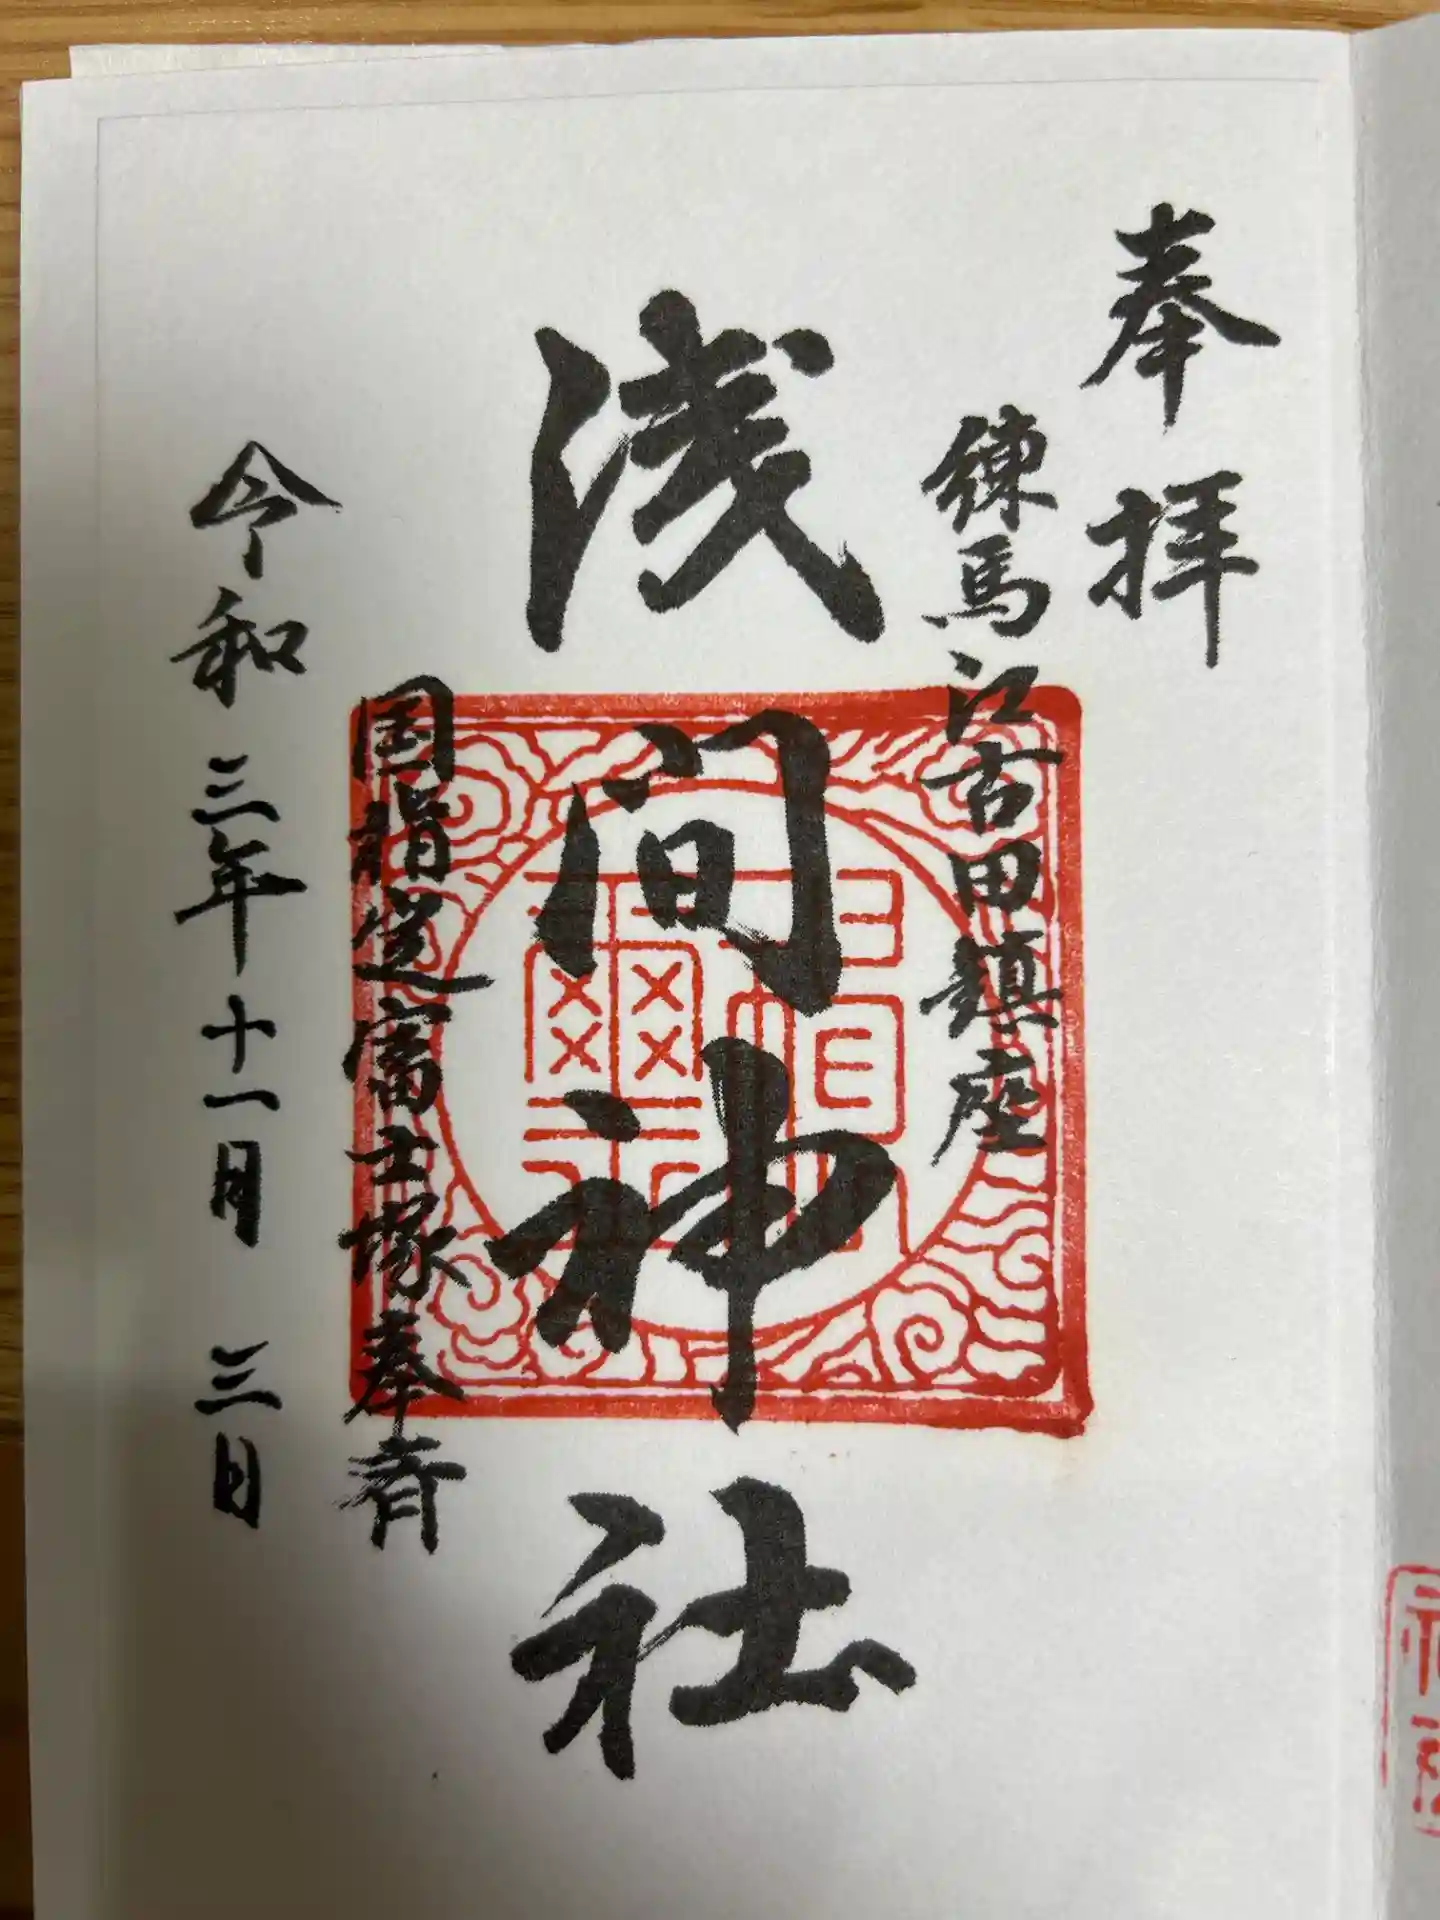 奉拝
練馬江古田鎮座
浅間神社
国指定富士塚奉斎
令和三年十一月三日